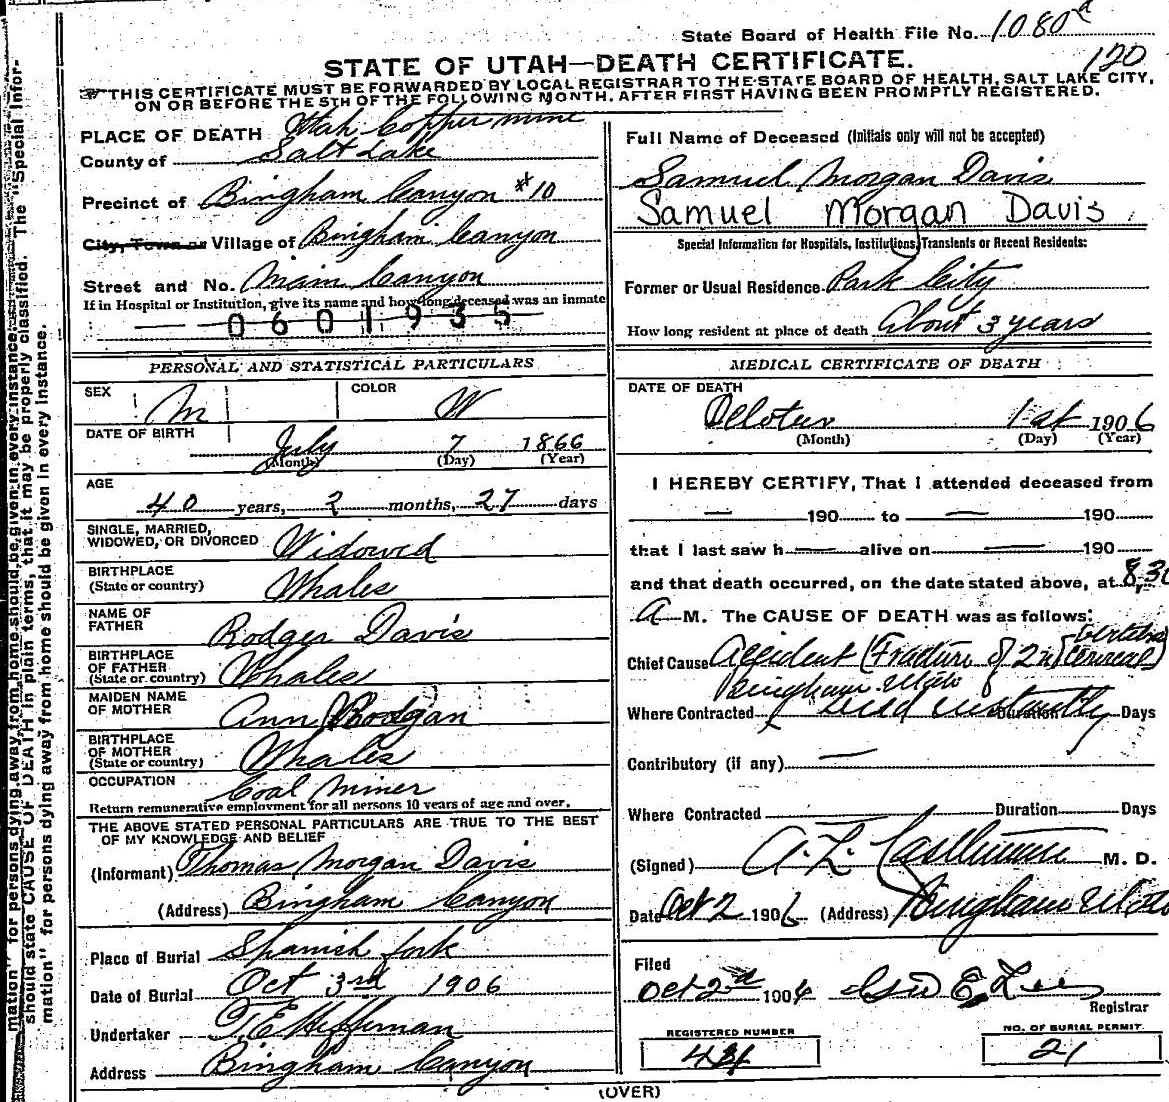 State Board of Health File No. 1080 a
120
STATE OF UTAH—DEATH CERTIFICATE.
THIS CERTIFICATE MUST BE FORWARDED BY LOCAL REGISTRAR TO THE STATE BOARD OF HEALTH, SALT LAKE CITY,
ON OR BEFORE THE 5TH OF THE FOLLOWING MONTH, AFTER FIRST HAVING BEEN PROMPTLY REGISTERED.
PLACE OF DEATH Utah Copper mine
County of Salt Lake
Precinct of Bingham Canyon #10
City, Town or Village of Bingham Canyon
Street and No. Main Canyon
If in Hospital or Institution, give its name and how long deceased was an inmate
0601935
PERSONAL AND STATISTICAL PARTICULARS
SEX M COLOR W
DATE OF BIRTH July 7 1866
(Month) (Day) (Year)
AGE
40 years, 2 months, 27 days
SINGLE, MARRIED,
WIDOWED, OR DIVORCED Widowed
BIRTHPLACE
(State or country) Whales
NAME OF
FATHER Rodger Davis
BIRTHPLACE
OF FATHER
(State or country) Whales
MAIDEN NAME
OF MOTHER Ann
BIRTHPLACE
OF MOTHER
(State or country) Whales
OCCUPATION Coal Miner
Return remunerative employment for all persons 10 years of age and over.
THE ABOVE STATED PERSONAL PARTICULARS ARE TRUE TO THE BEST
OF MY KNOWLEDGE AND BELIEF
(Informant) Thomas Morgan Davis
(Address) Bingham Canyon
Place of Burial Spanish fork
Date of Burial Oct 3rd 1906
Undertaker T. E. Heffernan
Address Bingham Canyon
Full Name of Deceased (Initials only will not be accepted)
Samuel Morgan Davis
Samuel Morgan Davis
Special Information for Hospitals, Institutions, Transients or Recent Residents:
Former or Usual Residence. Park City
How long resident at place of death About 3 years
MEDICAL CERTIFICATE OF DEATH
DATE OF DEATH
October 1st 1906
(Month) (Day) (Year)
I HEREBY CERTIFY, That I attended deceased from
— 190 to — 190
that I last saw h — alive on — 190
and that death occurred, on the date stated above, at 8,30
A M. The CAUSE OF DEATH was as follows:
Chief Cause Accident (Fracture of 2nd cervical vertebra)
Bingham Utah
Where Contracted Died instantly Duration Days
Contributory (if any) —
Where Contracted Duration Days
(Signed) A. L. M. D.
Date Oct 2 1906 (Address) Bingham Utah
Filed
Oct 2nd 1906 E. Lees
Registrar
REGISTERED NUMBER
NO. OF BURIAL PERMIT
21
(OVER)
mation" for persons dying away from home should be given in every instance. The "Special Infor-
should state CAUSE OF DEATH in plain terms, that it may be properly classified.
mation" for persons dying away from home should be given in every instance.